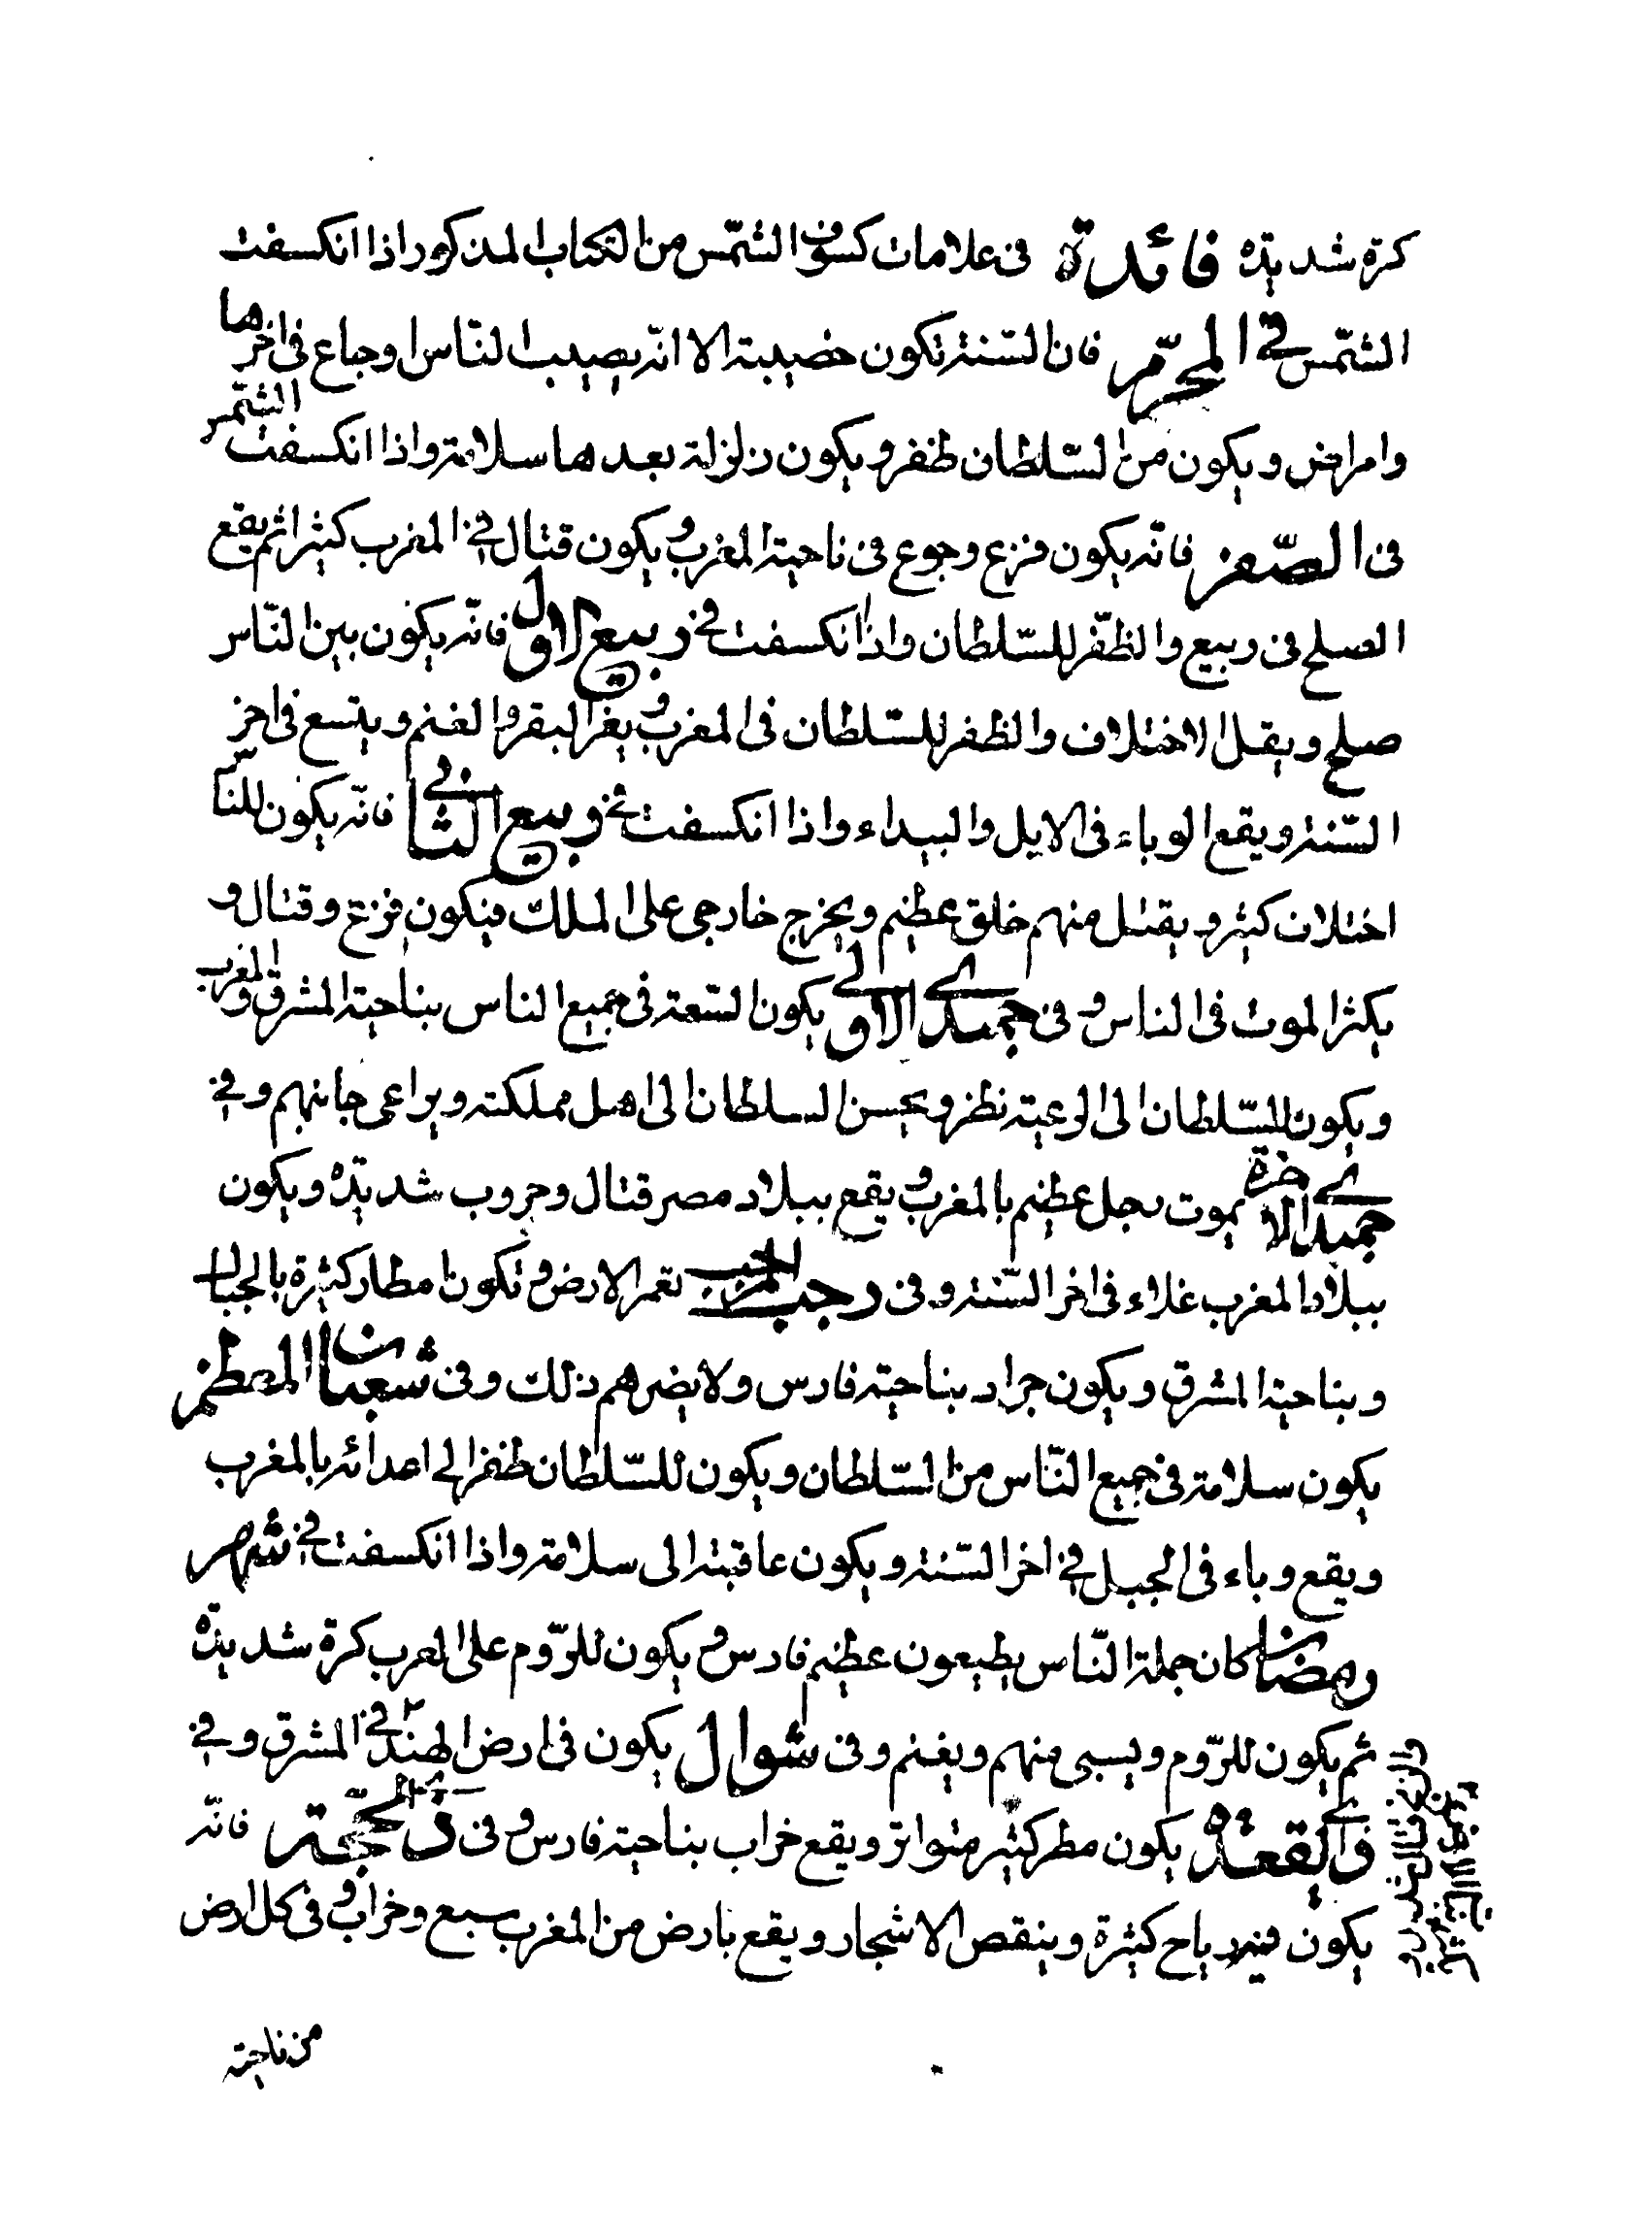 كرة شديدة فائدة فى علامات كسوف الشمس من الكتاب المذكور اذا انكسفت
الشمس فى المحرّم فان السّنة تكون خصيبة الا انّه يصيب النّاس اوجاع فى اخرها
وامراض ويكون من السّلطان ظفر ويكون زلزلة بعدها سلامة واذا انكسفت الشمس
فى الصّفر فانّه يكون فزع وجوع فى ناحية المغرب ويكون قتال فى المغرب كثيرا ثم يقع
الصلح فى ربيع والظّفر للسّلطان واذا انكسفت فى ربيع الاول فانّه يكون بين النّاس
صلح ويقل الاختلاف والظفر للسّلطان فى المغرب ويغر البقر والغنم ويتسع فى اخر
السّنة ويقع الوباء فى الايل والبيداء واذا انكسفت فى ربيع الثانى فانّه يكون للنّاس
اختلاف كثير ويقتل منهم خلق عظيم ويخرج خارجى على الملك فيكون فزع وقتال و
يكثر الموت فى الناس وفى جميدى الاولى يكون السّعة فى جميع الناس بناحية المشرق والمغرب
ويكون للسّلطان الى الرعيّة نظر ويحسن السلطان الى اهل مملكته ويراعى جانبهم وفى
جميدى الاخرة يموت رجل عظيم بالمغرب ويقع ببلاد مصر قتال وحروب شديدة ويكون
ببلاد المغرب غلاء فى اخر السّنة وفى رجب المرجب تعمر الارض وتكون امطار كثيرة بالجبال
وبناحية المشرق ويكون جراد بناحية فارس ولا يضرهم ذلك وفى شعبان المعظم
يكون سلامة فى جميع النّاس من السّلطان ويكون للسّلطان ظفرا الى اعدائه بالمغرب
ويقع وباء فى الجبل فى اخر السّنة ويكون عاقبته الى سلامة واذا انكسفت فى شهر
رمضان كان جملة النّاس يطيعون عظيم فارس ويكون للرّوم على العرب كرة شديدة
ثم يكون للرّوم ويسبى منهم ويغنم وفى شوال يكون فى ارض الهند فى المشرق وفى
ذى القعدة يكون مطر كثير متواتر ويقع خراب بناحية فارس وفى ذى الحجّة فانّه
يكون فيه رياح كثيرة وينقص الاشجار ويقع بارض من المغرب سبع وخراب وفى كل ارض
من ناحية